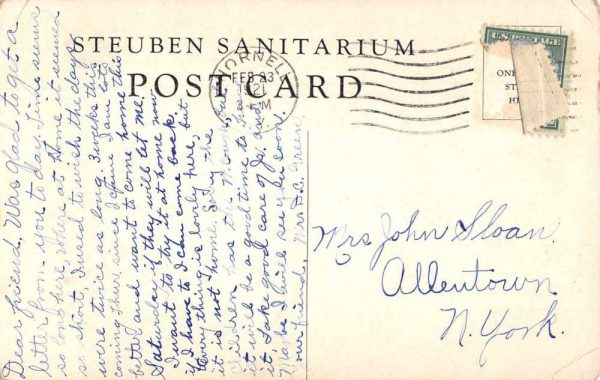 STEUBEN SANITARIUM
POST CARD
HORNELL
FEB 23
1921
PM
U.S. POSTAGE
ONE
ST
HE
Dear friend, Was glad to get a
letter from you to day. Time seems
so long here, where at home it seemed
so short, I used to wish the days
were twice as long. 3 weeks this
coming Thurs. since I came. I am lots
better and want to come home this
Saturday if they will let me.
I want to try it at home now
if I have to I can come back,
Every thing is lovely here, but
it is not home. Sorry the
children has the
it will be a good time to have
it, Take good care of Jr. and
Maybe I will see you soon.
your friend, Mrs. Green.
Mrs John Sloan.
Allentown
N. York.